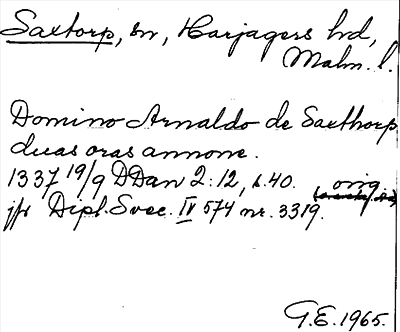 Saxtorp, sn, Harjagers hrd,
Malm. l.
Domino Arnaldo de Saxthorp
duas oras annone.
1337 19/9 DDan 2:12, s. 40. orig
jfr Dipl. Svec. IV 574 nr. 3319.
G.E. 1965.